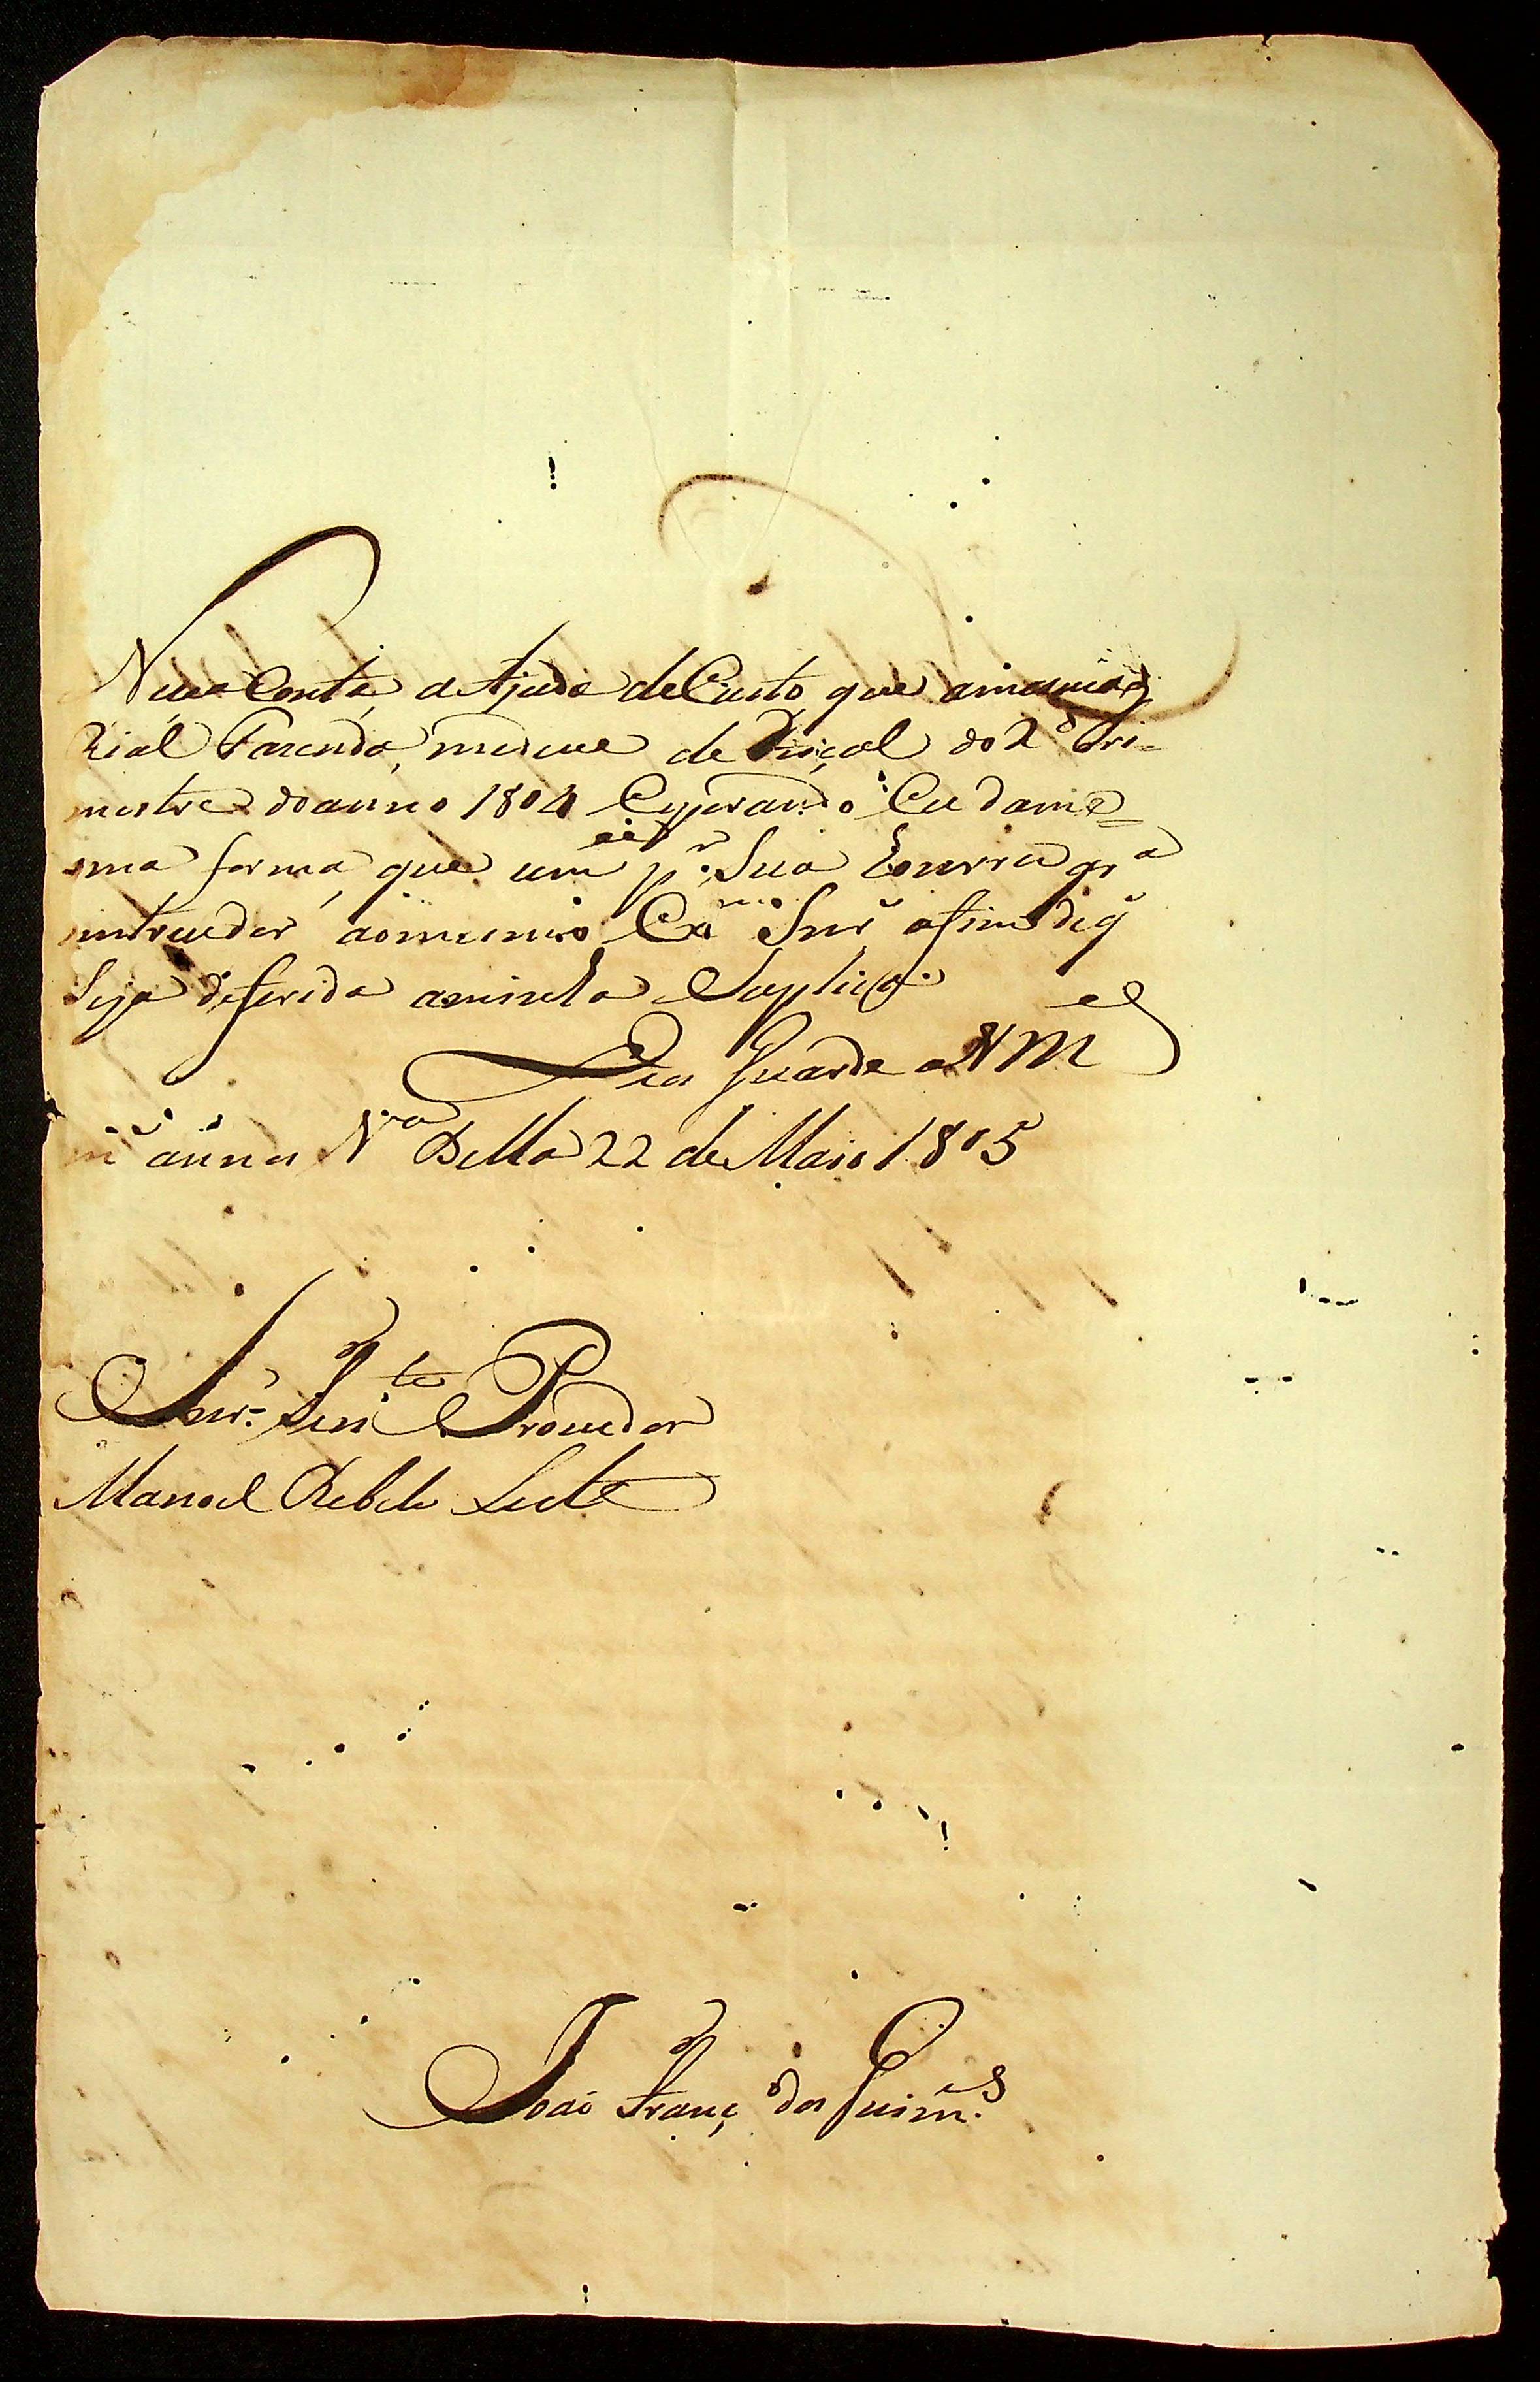 Conta, a Ajuda de Custo que amesma
Rial Fazenda, me deve de Fiscal do 2º tri-
mestre do anno 1804 Esperando Eu dame=
sma forma, que um pr. Sua
aomesmo Exmo Snr afim de q̃
Seja deferida aminha Suplica
Deos Guarde a VMce
m annos Va Bella 22 de Maio 1805
Snr. Tente Provedor
Manoel Rebelo Leite
João Franco dos Guims.